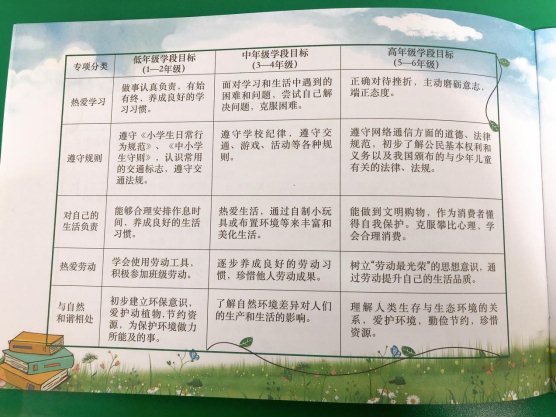 专项分类
低年级学段目标
(1—2年级)
中年级学段目标
(3—4年级)
高年级学段目标
(5—6年级)
热爱学习
做事认真负责，有始
有终，养成良好的学
习习惯。
面对学习和生活中遇到的
困难和问题，尝试自己解
决问题，克服困难。
正确对待挫折，主动磨砺意志，
端正态度。
遵守规则
遵守《小学生日常行
为规范》、《中小学
生守则》，认识常用
的交通标志，遵守交
通法规。
遵守学校纪律，遵守交
通、游戏、活动等各种规
则。
遵守网络通信方面的道德、法律
规范，初步了解公民基本权利和
义务以及我国颁布的与少年儿童
有关的法律、法规。
对自己的
生活负责
能够合理安排作息时
间、养成良好的生活
习惯。
热爱生活，通过自制小玩
具或布置环境等来丰富和
美化生活。
能做到文明购物，作为消费者懂
得自我保护。克服攀比心理，学
会合理消费。
热爱劳动
学会使用劳动工具，
积极参加班级劳动。
逐步养成良好的劳动习
惯，珍惜他人劳动成果。
树立“劳动最光荣”的思想意识，通
过劳动提升自己的生活品质。
与自然
和谐相处
初步建立环保意识，
爱护动植物，节约资
源，为保护环境做力
所能及的事。
了解自然环境差异对人们
的生产和生活的影响。
理解人类生存与生态环境的关
系，爱护环境，勤俭节约，珍惜
资源。